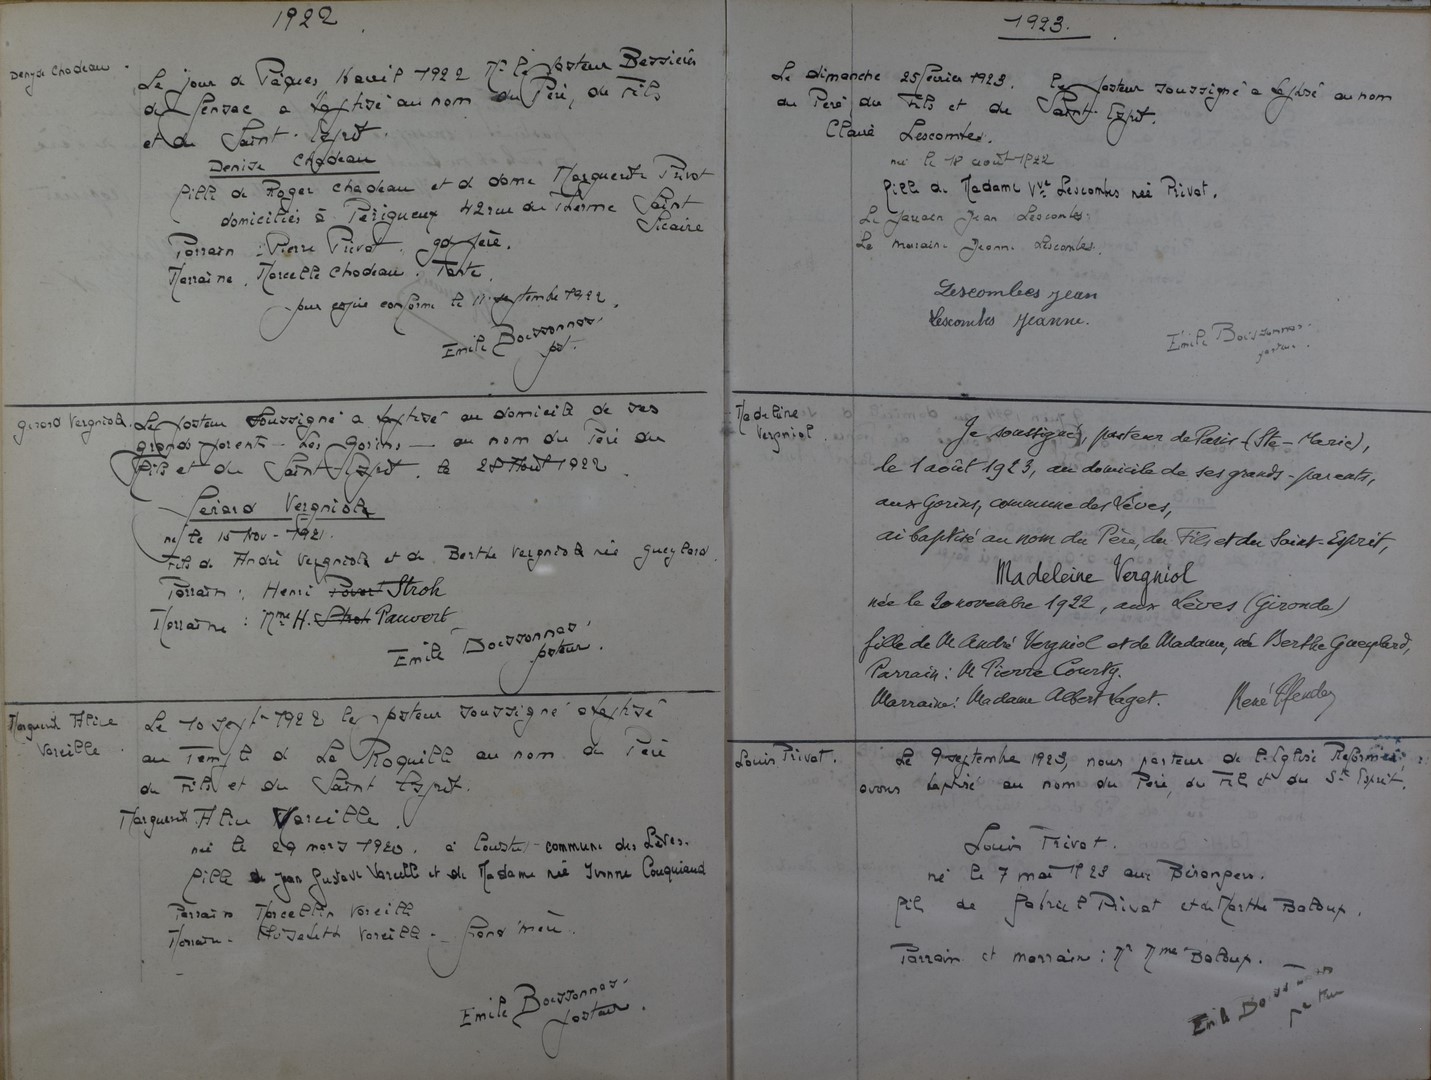 1922
Denyse Chadeau
Le jour de Pâques 16 avril 1922 Mr le Pasteur Bessières
de Gensac a baptisé au nom du Père, du Fils
et du Saint-Esprit.
Denise Chadeau
fille de Roger Chadeau et de dame Marguerite Privat
domiciliés à Périgueux 42 rue du Therme Saint
Sicaire
Parrain : Pierre Privat. gd père.
Marraine. Marcelle Chadeau. Tante.
pour copie conforme le 11 septembre 1922.
Emile Boissonnas
past.
Gérard Vergniol.
Le pasteur soussigné a baptisé au domicile de ses
grands parents - Les Gorins - au nom du Père du
Fils et du Saint Esprit. le 28 Août 1922
Gérard Vergniol
né le 15 Nov - 1921.
Fils de André Vergniol et de Berthe Vergniol née Gueylard.
Parrain : Henri Stroh
Marraine : Mme H. Stroh Pauvert
Emile Boissonnas
pasteur.
Marguerite Aline
Vareille.
Le 10 Sept 1922 le pasteur soussigné a baptisé
au Temple de La Roquille au nom du Père
du Fils et du Saint Esprit.
Marguerite Aline Vareille.
née le 29 mars 1920. à commune des Lèves.
fille de Jean Gustave Vareille et de Madame née Ivonne Couquiaud
Parrain Marcellin Vareille
Marraine - Elisabeth Vareille - Grand'mère.
Emile Boissonnas
pasteur.
1923.
Le dimanche 25 février 1923. le pasteur soussigné a baptisé au nom
du Père du Fils et du Saint-Esprit.
Claire Lescombes.
née le 18 août 1922
fille de Madame Vve Lescombes née Privat.
Le parrain Jean Lescombes.
La marraine Jeanne Lescombes.
Lescombes Jean
Lescombes Jeanne.
Emile Boissonnas
pasteur.
Madeleine
Vergniol.
Je soussigné, pasteur de Paris (Ste-Marie),
le 1 août 1923, au domicile de ses grands-parents,
aux Gorins, commune des Lèves,
ai baptisé au nom du Père, du Fils et du Saint-Esprit,
Madeleine Vergniol
née le 20 novembre 1922, aux Lèves (Gironde)
fille de M André Vergniol et de Madame, née Berthe Gueylard,
Parrain : M Pierre Courty.
Marraine : Madame Albert Laget.
René
Louis Privat.
Le 9 septembre 1923, nous pasteur de l'Eglise Réformée,
avons baptisé au nom du Père, du Fils et du St Esprit.
Louis Privat.
né le 7 mai 1923 aux Bérangers.
fils de Gabriel Privat et de Marthe Baloup.
Parrain et marraine : Mr Mme Baloup.
Emile Boissonnas
pasteur